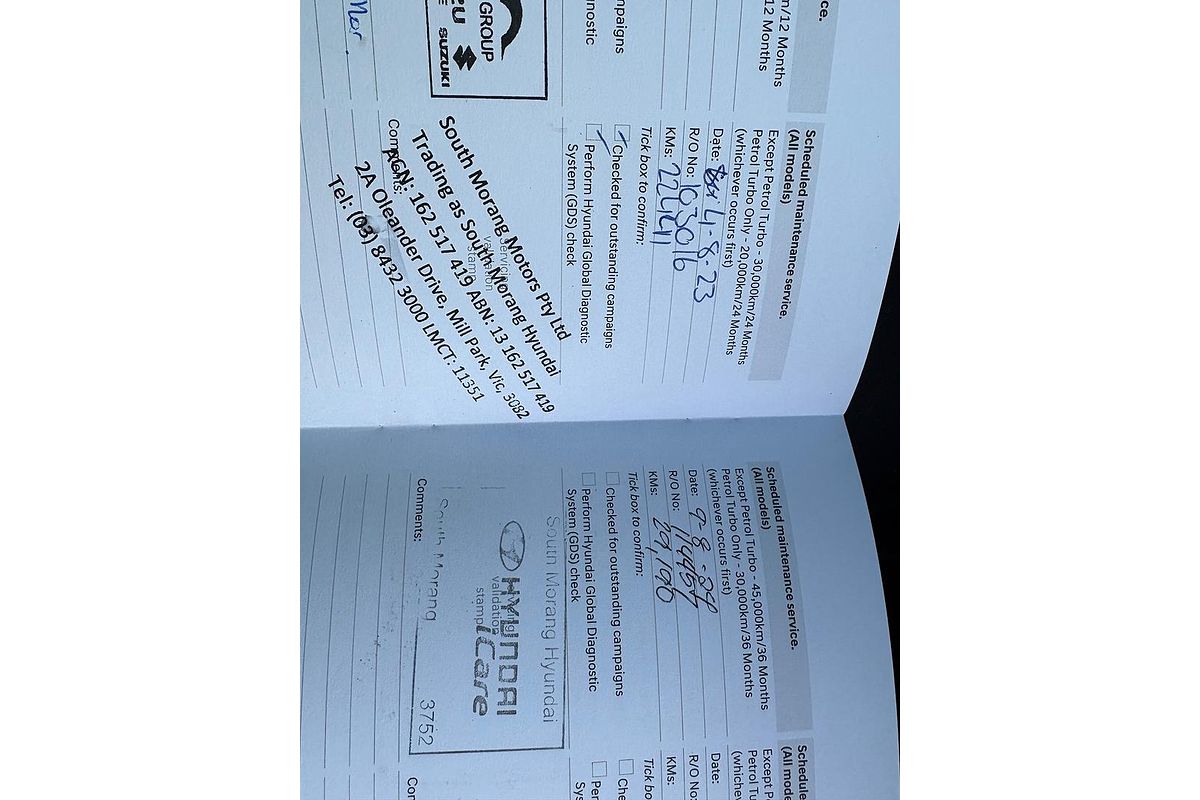 ce.
n/12 Months
12 Months
npaigns
gnostic
GROUP
SUZUKI
Mor
Scheduled maintenance service.
(All models)
Except Petrol Turbo - 30,000km/24 Months
Petrol Turbo Only - 20,000km/24 Months
(whichever occurs first)
Date: 4-8-23
R/O No: 103016
KMs:
Tick box to confirm:
Checked for outstanding campaigns
Perform Hyundai Global Diagnostic
System (GDS) check
Servicing
Validation
stamp
South Morang Motors Pty Ltd
Trading as South Morang Hyundai
ACN: 162 517 419 ABN: 13 162 517 419
2A Oleander Drive, Mill Park, Vic, 3082
Tel: (03) 8432 3000 LMCT: 11351
Comments:
Scheduled maintenance service.
(All models)
Except Petrol Turbo - 45,000km/36 Months
Petrol Turbo Only - 30,000km/36 Months
(whichever occurs first)
Date: 9-8-24
R/O No:
KMs: 29,190
Tick box to confirm:
Checked for outstanding campaigns
Perform Hyundai Global Diagnostic
System (GDS) check
South Morang Hyundai
HYUNDAI
iCare
Servicing
Validation
stamp
South Morang 3752
Comments:
Schedule
(All mode
Except P
Petrol T
(whichev
Date:
R/O No:
KMs:
Tick bo
Che
Per
Sys
Con